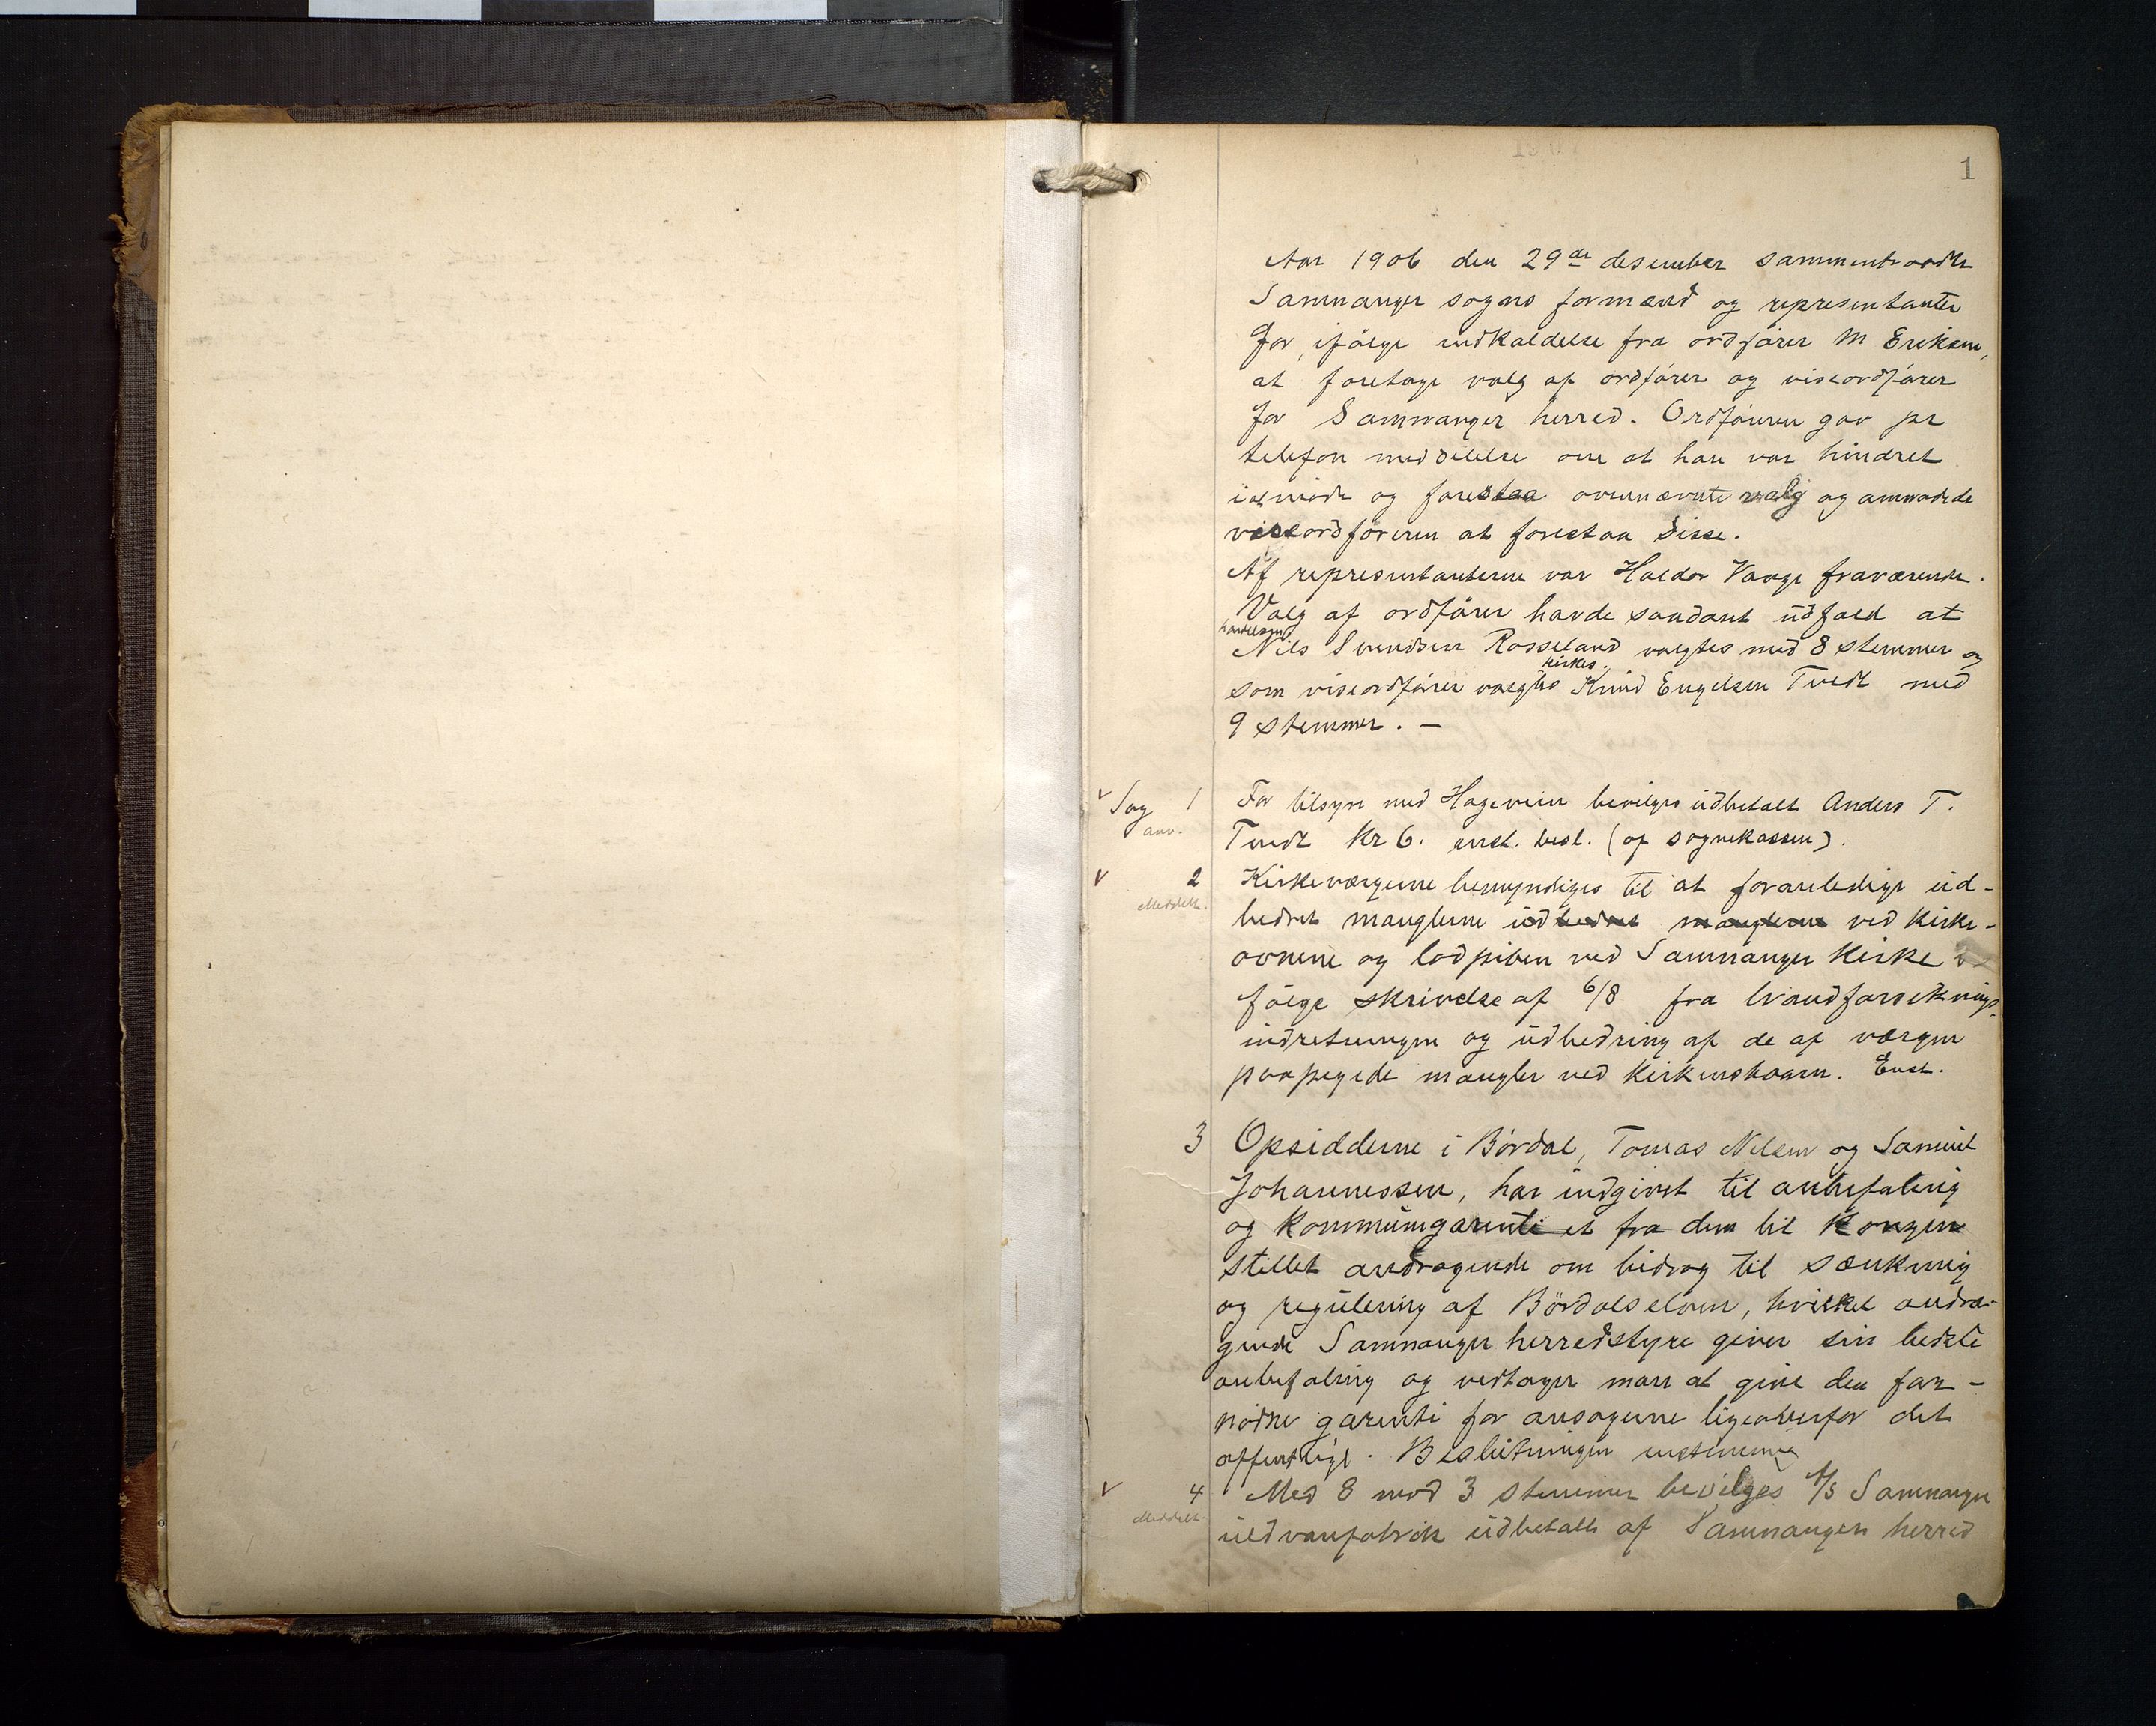 1
Aar 1906 den 29de desember sammentraadte
Samnanger sogns formænd og representanter
for, ifölge indkaldelse fra ordförer M Eriksen,
at foretage valg af ordförer og viseordförer
for Samnanger herred. Ordföreren gav pr
telefon meddelelse om at han var hindret
i at möde og forestaa ovennævnte valg og anmodede
viseordföreren at forestaa disse.
Af representanterne var Haldor Vaage fraværende.
Valg af ordförer havde saadant udfald at
Nils Svendsen Rosseland valgtes med 8 stemmer og
kirkes.
som viseordförer valgtes Knud Engelsen Tvedt med
9 stemmer. —
Sag 1 For tilsyn med Hageveien bevilges udbetalt Anders T.
anv. Tvedt Kr 6. enst. besl. (af sognekassen).
2 Kirkeværgerne bemyndiges til at foranledige ud-
Meddelt. bedret manglerne udbedret manglerne ved kirke-
ovnene og lodpiben ved Samnanger kirke
fölge skrivelse af 6/8 fra brandforsikrings
indretningen og udbedring af de af værgen
paapegede mangler ved kirkenskaarn. Enst.
3 Opsidderne i Bördal, Tomas Nilsen og Samuel
Johannessen, har indgivet til anbefaling
og kommungarenti et fra dem til Kongen
stillet andragende om bidrag til sænkning
og regulering af Bördalselven, hvilket andra-
gende Samnanger herredstyre giver sin bedste
anbefaling og vedtager man at give den for-
nödne garenti for ansögerne ligeoverfor det
offentlige. Beslutningen enstemmig
4 Med 8 mod 3 stemmer bevilges A/S Samnanger
Meddelt. uldvarefabrik udbetalt af Samnanger herred